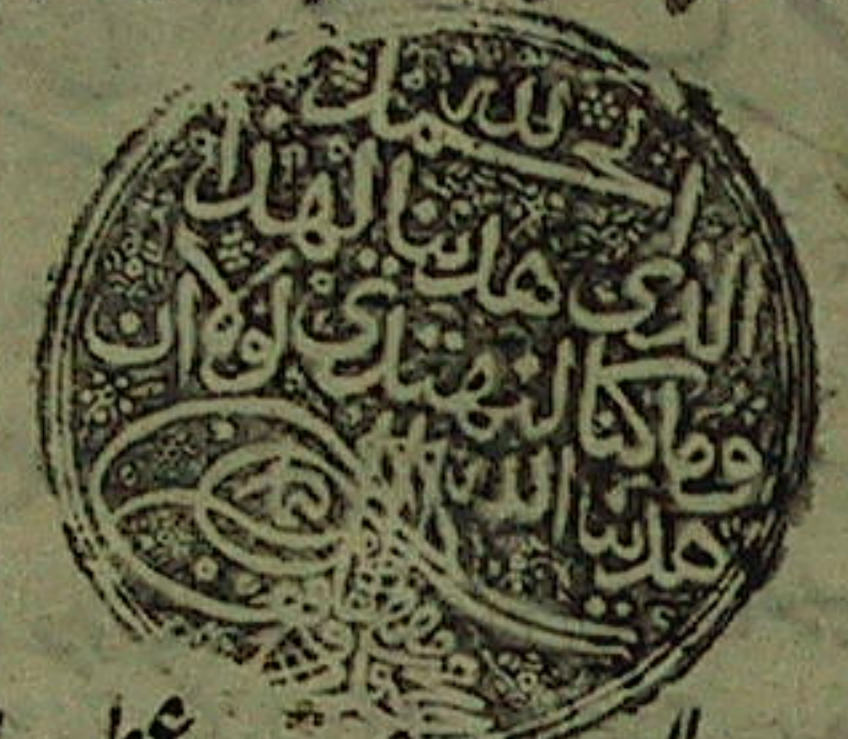 الحمد لله
الذی هدینا لهذا
وما کنا لنهتدی لولا ان
هدینا الله